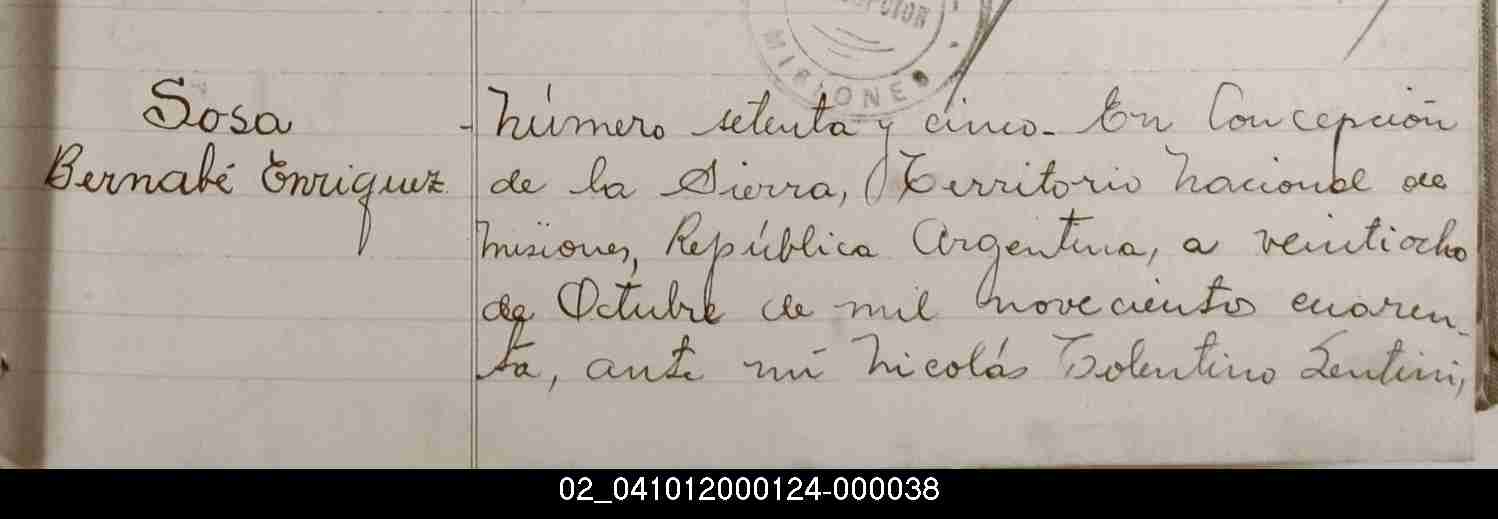 CEPCION
MISIONES
Sosa
Bernabé Enriquez
- Número setenta y cinco. En Concepción
de la Sierra, Territorio Nacional de
misiones, República Argentina, a veintiocho
de Octubre de mil novecientos cuaren-
ta, ante mí Nicolás Tolentino Lentini,
02_041012000124-000038